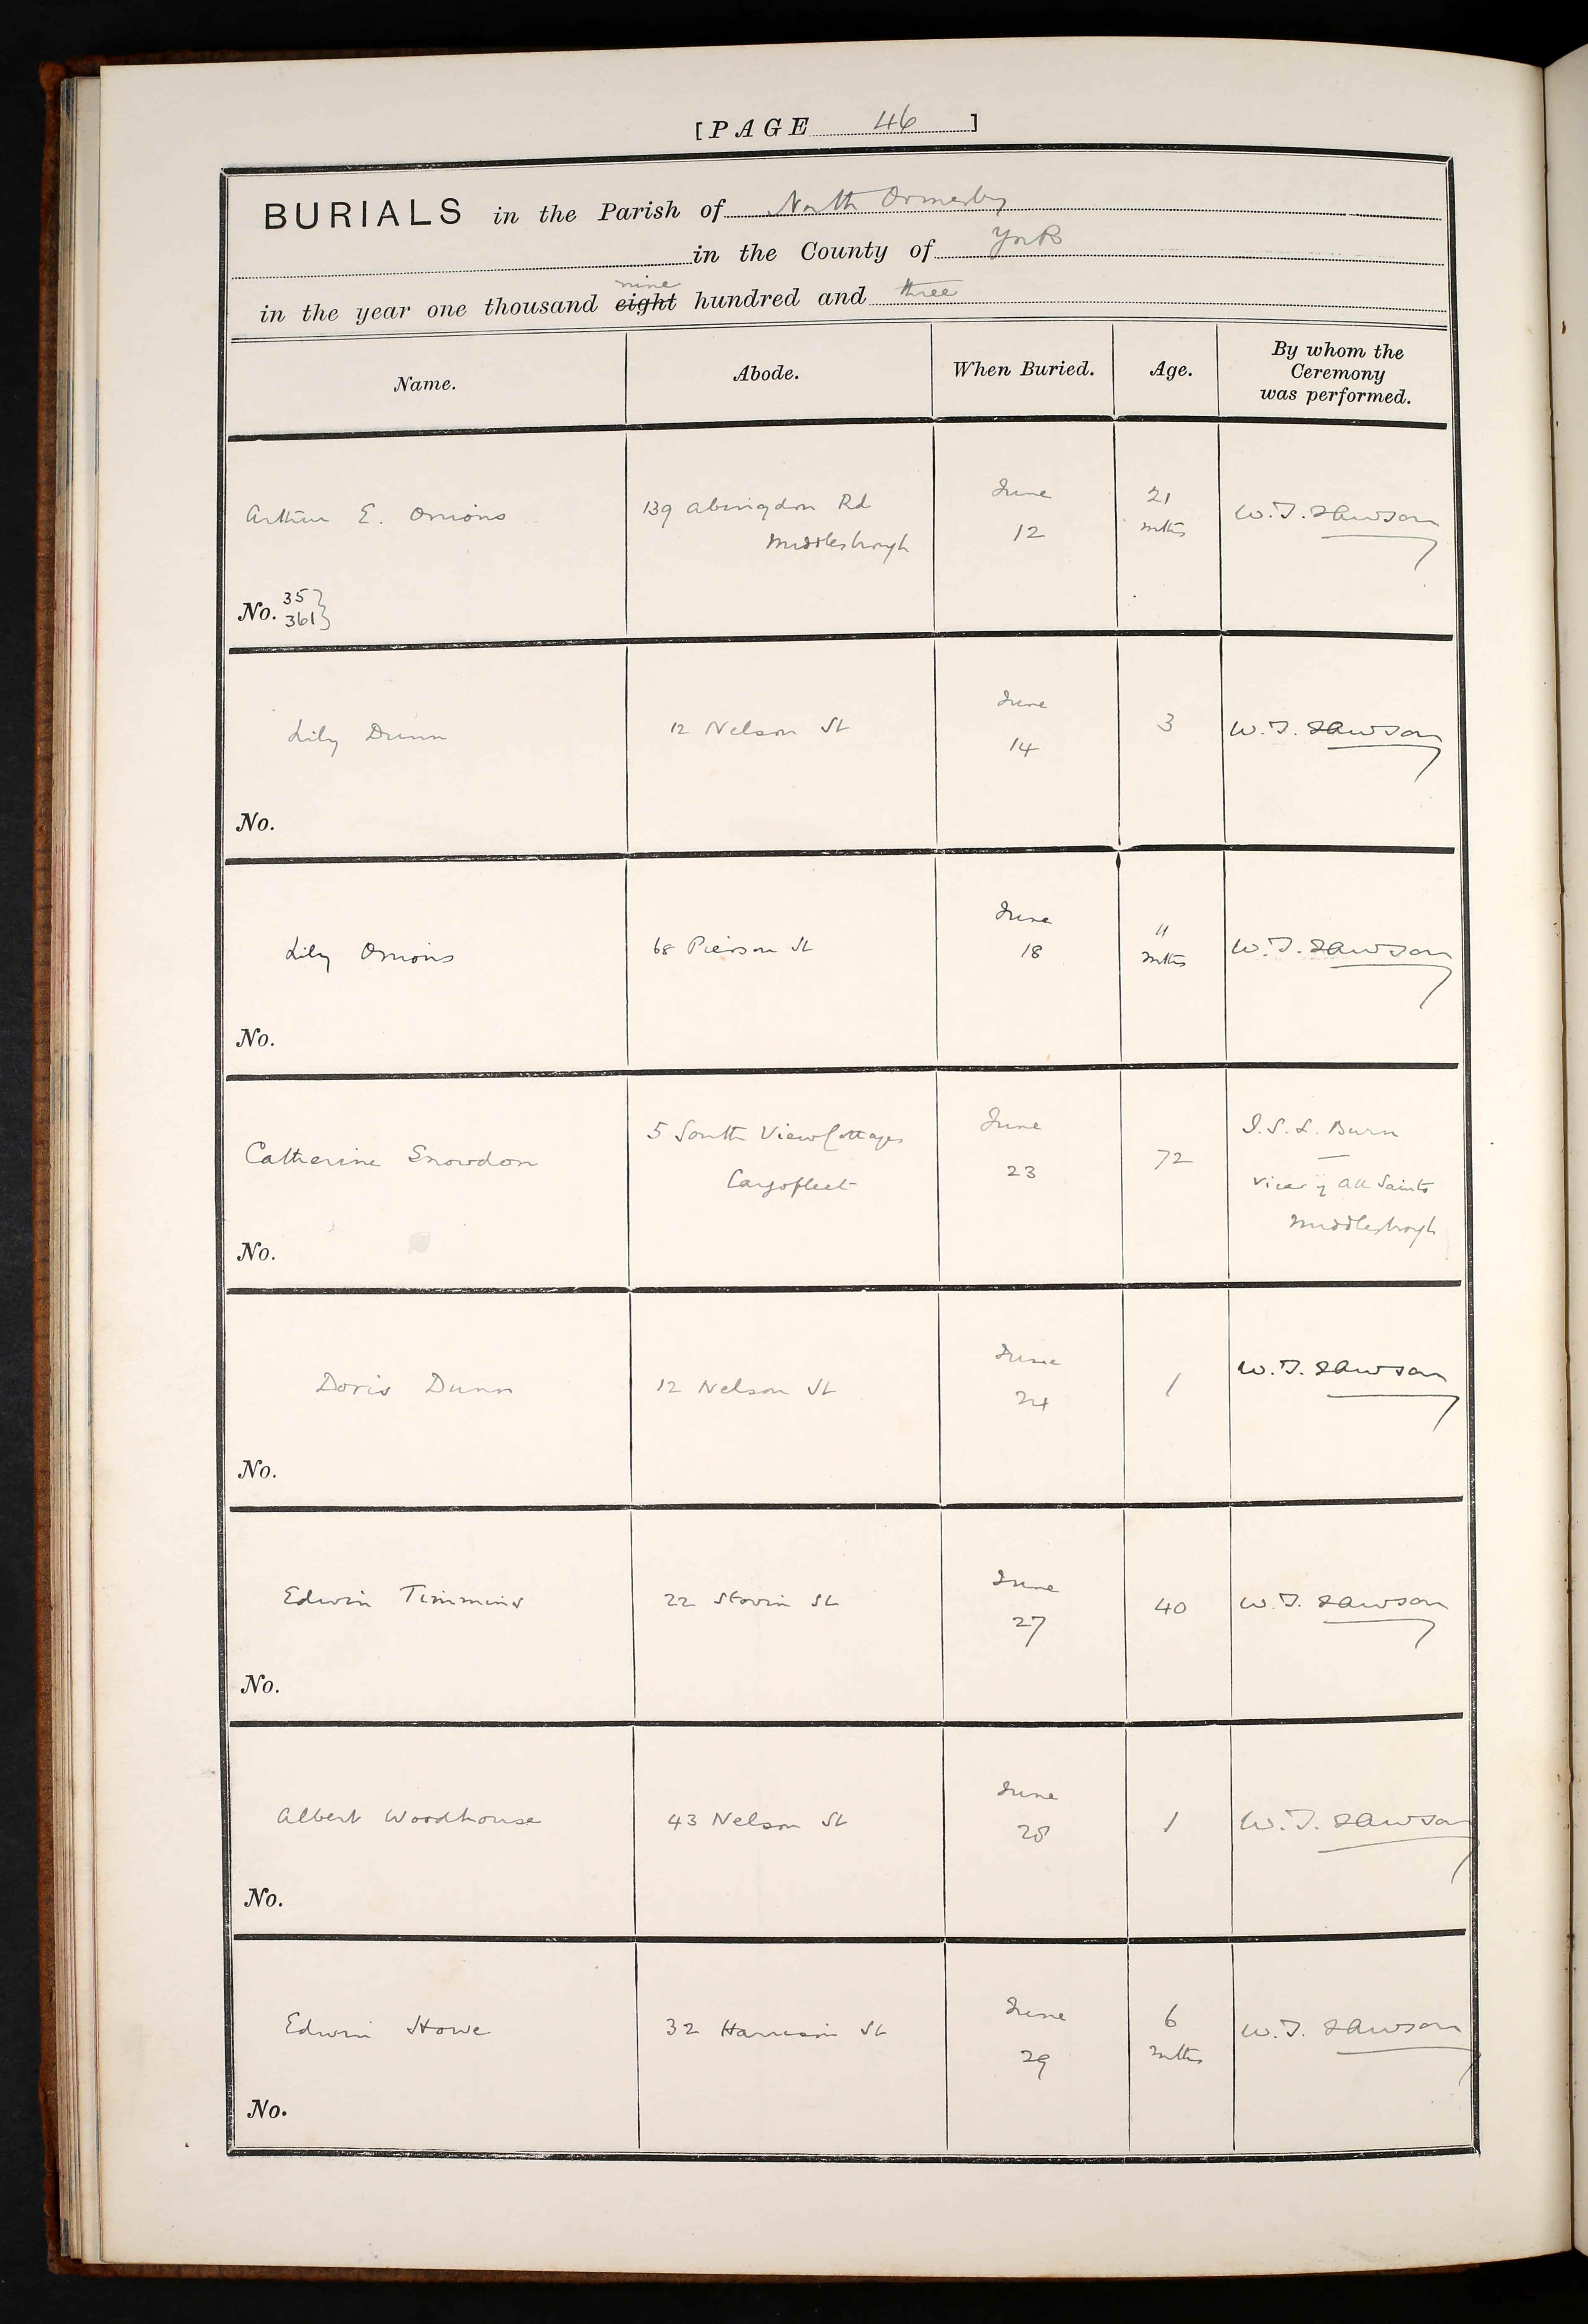 [PAGE 46 ]
BURIALS in the Parish of North Ormesby
in the County of York
nine
in the year one thousand eight hundred and three
Name. Abode. When Buried. Age. By whom the Ceremony was performed.
Arthur E. Onions 139 Abingdon Rd Middlesbrough June 12 21 mths W. T. Lawson
No. 35 } 361 }
Lily Dunn 12 Nelson St June 14 3 W. T. Lawson
No.
Lily Onions 68 Pierson St June 18 11 mths W. T. Lawson
No.
Catherine Snowdon 5 South View Cottages Cargofleet June 23 72 I. S. L. Burn Vicar of All Saints Middlesbrough
No.
Doris Dunn 12 Nelson St June 24 1 W. T. Lawson
No.
Edwin Timmins 22 Stovin St June 27 40 W. T. Lawson
No.
Albert Woodhouse 43 Nelson St June 28 1 W. T. Lawson
No.
Edwin Howe 32 Harrison St June 29 6 mths W. T. Lawson
No.